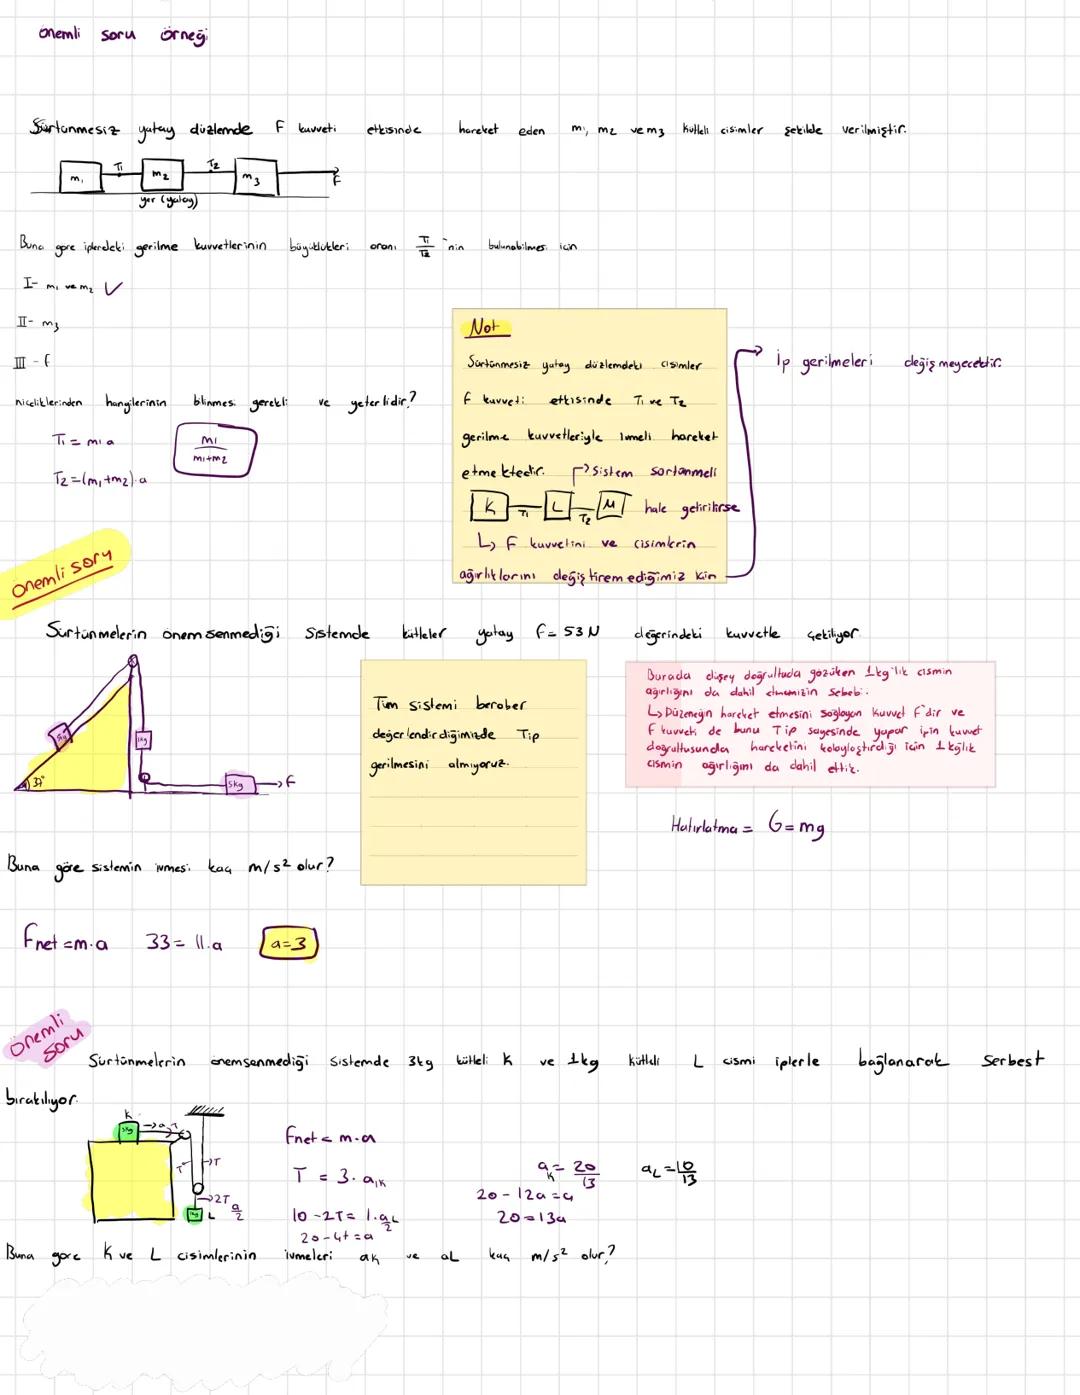 önemli soru örneği
Sürtünmesiz yatay düzlemde F kuvveti etkisinde hareket eden m₁, m₂ ve m₃ kütleli cisimler şekilde verilmiştir.
m₁ T₁ m₂ T₂ m₃ F
yer (yatay)
Buna göre iplerdeki gerilme kuvvetlerinin büyüklükleri oranı T₁/T₂ 'nin bulunabilmesi için
I- m₁ ve m₂ ✓
II- m₃
III - f
niceliklerinden hangilerinin bilinmesi gerekli ve yeterlidir?
T₁ = m₁ a
m₁/m₁+m₂
T₂ =(m₁+m₂).a
Not
Sürtünmesiz yatay düzlemdeki cisimler
F kuvveti etkisinde T₁ ve T₂
gerilme kuvvetleriyle ivmeli hareket
etmektedir. → Sistem sürtünmeli
K T₁ L T₂ M hale getirilirse
↳ F kuvvetini ve cisimlerin
ağırlıklarını değiştiremediğimiz için
→ İp gerilmeleri değişmeyecektir.
önemli soru
Sürtünmelerin önemsenmediği sistemde kütleler yatay F= 53 N değerindeki kuvvetle çekiliyor.
5kg
1kg
37°
5kg → F
Tüm sistemi beraber
değerlendirdiğimizde Tip
gerilmesini almıyoruz.
Burada düşey doğrultuda gözüken 1kg'lık cismin
ağırlığını da dahil etmemizin sebebi:
↳ Düzeneğin hareket etmesini sağlayan kuvvet F'dir ve
F kuvveti de bunu Tip sayesinde yapar ipin kuvvet
doğrultusunda hareketini kolaylaştırdığı için 1kg'lık
cismin ağırlığını da dahil ettik.
Hatırlatma = G=mg
Buna göre sistemin ivmesi kaç m/s² olur?
Fnet =m.a 33= 11.a a=3
önemli soru
Sürtünmelerin önemsenmediği sistemde 3kg kütleli K ve 1kg kütleli L cismi iplerle bağlanarak serbest
bırakılıyor.
K
3kg → a T
T → T
→ 2T
1kg L a/2
Fnet = m.a
T = 3. aₖ
10 -2T = 1.a_L/2
20-4t =a
aₖ = 20/13
20 - 12a = a
20=13a
a_L = 10/13
Buna göre K ve L cisimlerinin ivmeleri aK ve aL kaç m/s² olur?